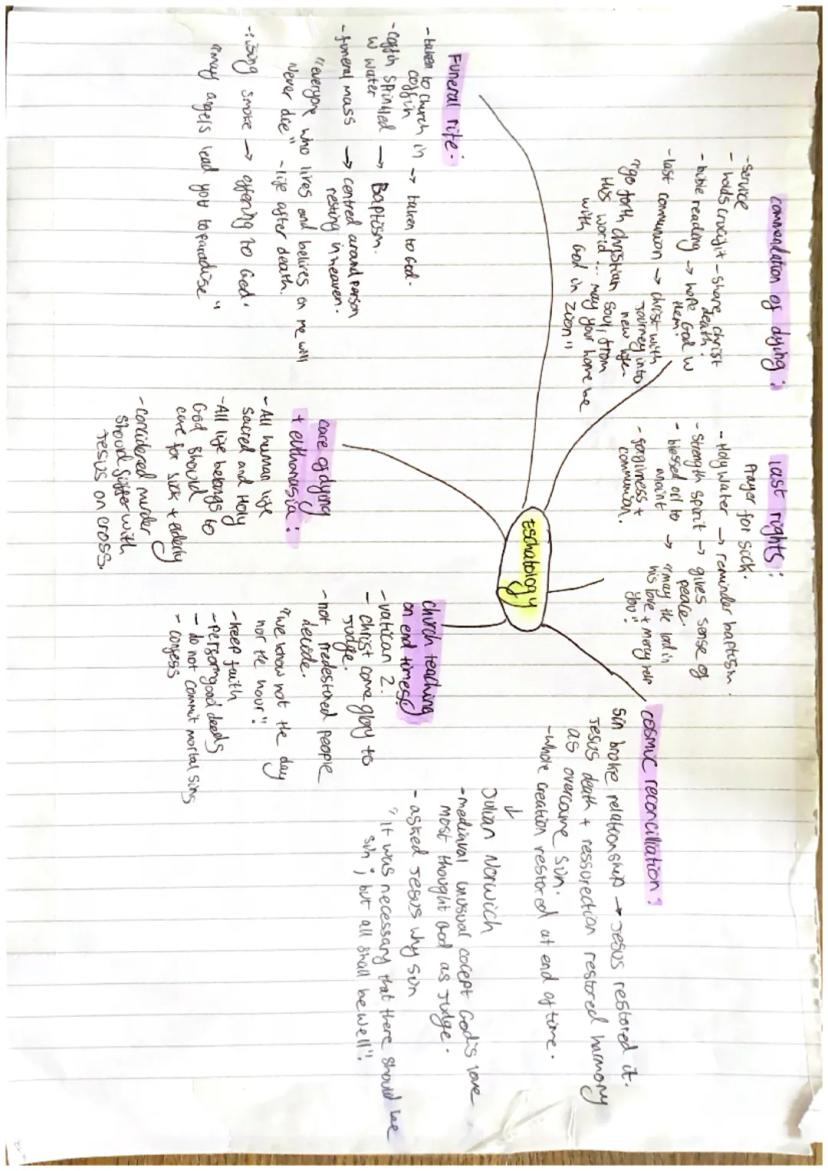 Eschatology
commendation of dying :
- service
- holds crucifix - share christ
death.
- bible reading → hope God w
them.
- last communion → christ with
journey into
new life
"go forth christian soul, from
this world ... may your home be
with God in
Zion"
last rights :
prayer for sick.
- Holy water → reminder baptism.
- strength spirit → gives sense of
peace.
- blessed oil to → "may the lord in
anoint his love + mercy help
you".
- forgivness +
communion.
cosmic reconciliation :
sin broke relationship → Jesus restored it.
Jesus death + ressurection restored harmony
as overcame sin.
- whole creation restored at end of time.
↓
Julian Norwich
- mediaval unusual cocept God's love
most thought God as judge.
- asked Jesus why sin
"it was necessary that there should be
sin ; but all shall be well".
Funeral rite :
- taken to church in → taken to God.
coffin
- coffin sprinkled → Baptism.
w water
- funeral mass → centred around person
resting in heaven.
"everyone who lives and belives on me will
never die" - life after death.
- rising smoke → offering to God.
"may angels lead you to paradise"
care of dying
+ euthanasia :
- All human life
sacred and Holy
- All life belongs to
God should
care for sick + elderly
- considered murder
should suffer with
Jesus on cross.
church teaching
on end times
- vatican 2.
- christ come glory to
judge.
- not predestored people
decide.
"we know not the day
nor the hour".
- keep faith
- perform good deeds
- do not commit mortal sins
- confess